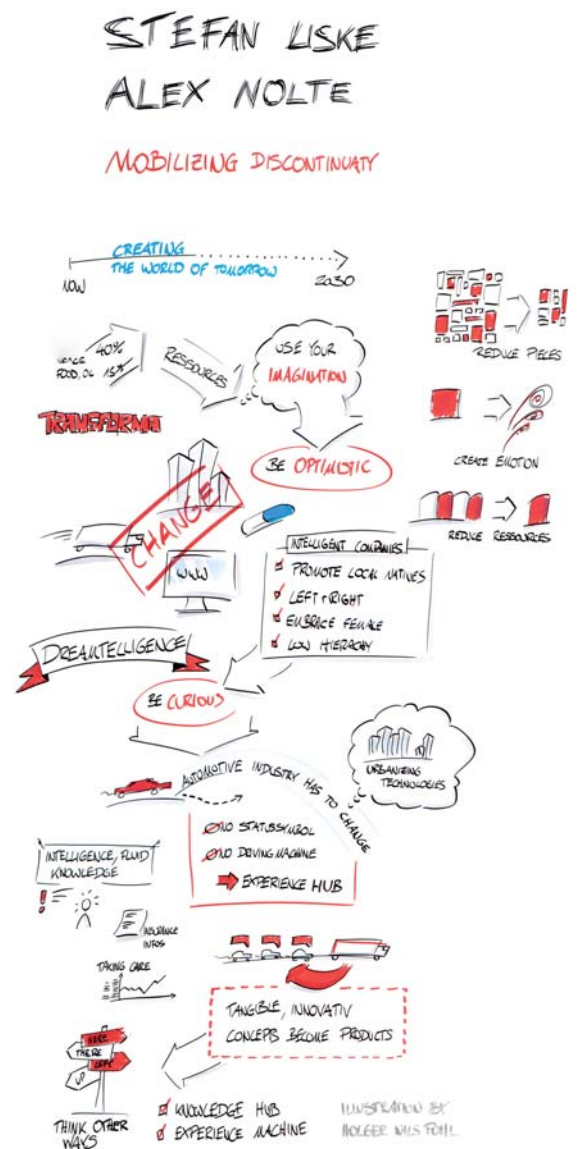 STEFAN LISKE
ALEX NOLTE
MOBILIZING DISCONTINUATY
CREATING
THE WORLD OF TOMORROW
NOW
2030
40%
FOOD, OIL 15%
RESSOURCES
USE YOUR
IMAGINATION
REDUCE PIECES
TRANSFORMA
BE OPTIMISTIC
CREATE EMOTION
CHANGE
REDUCE RESSOURCES
WWW
INTELLIGENT COMPANIES
PROMOTE LOCAL NATIVES
LEFT + RIGHT
EMBRACE FEMALE
LOW HIERARCHY
DREAMTELLIGENCE
BE CURIOUS
URBANIZING
TECHNOLOGIES
AUTOMOTIVE INDUSTRY HAS TO CHANGE
NO STATUSSYMBOL
NO DRIVING MACHINE
EXPERIENCE HUB
INTELLIGENCE, FLUID
KNOWLEDGE
INSURANCE
INFOS
TAKING CARE
TANGIBLE, INNOVATIV
CONCEPTS BECOME PRODUCTS
HERE
THERE
LEFT
UP
THINK OTHER
WAYS
KNOWLEDGE HUB
EXPERIENCE MACHINE
ILLUSTRATION BY
HOLGER NILS POHL